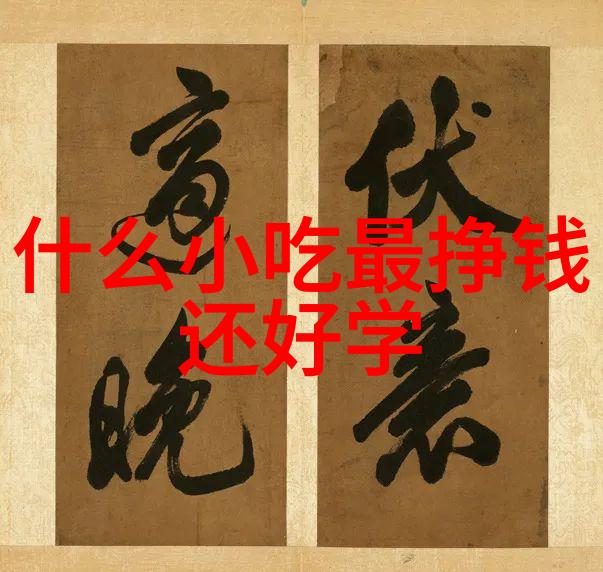 什么小吃最挣钱
还好学
伏
晚